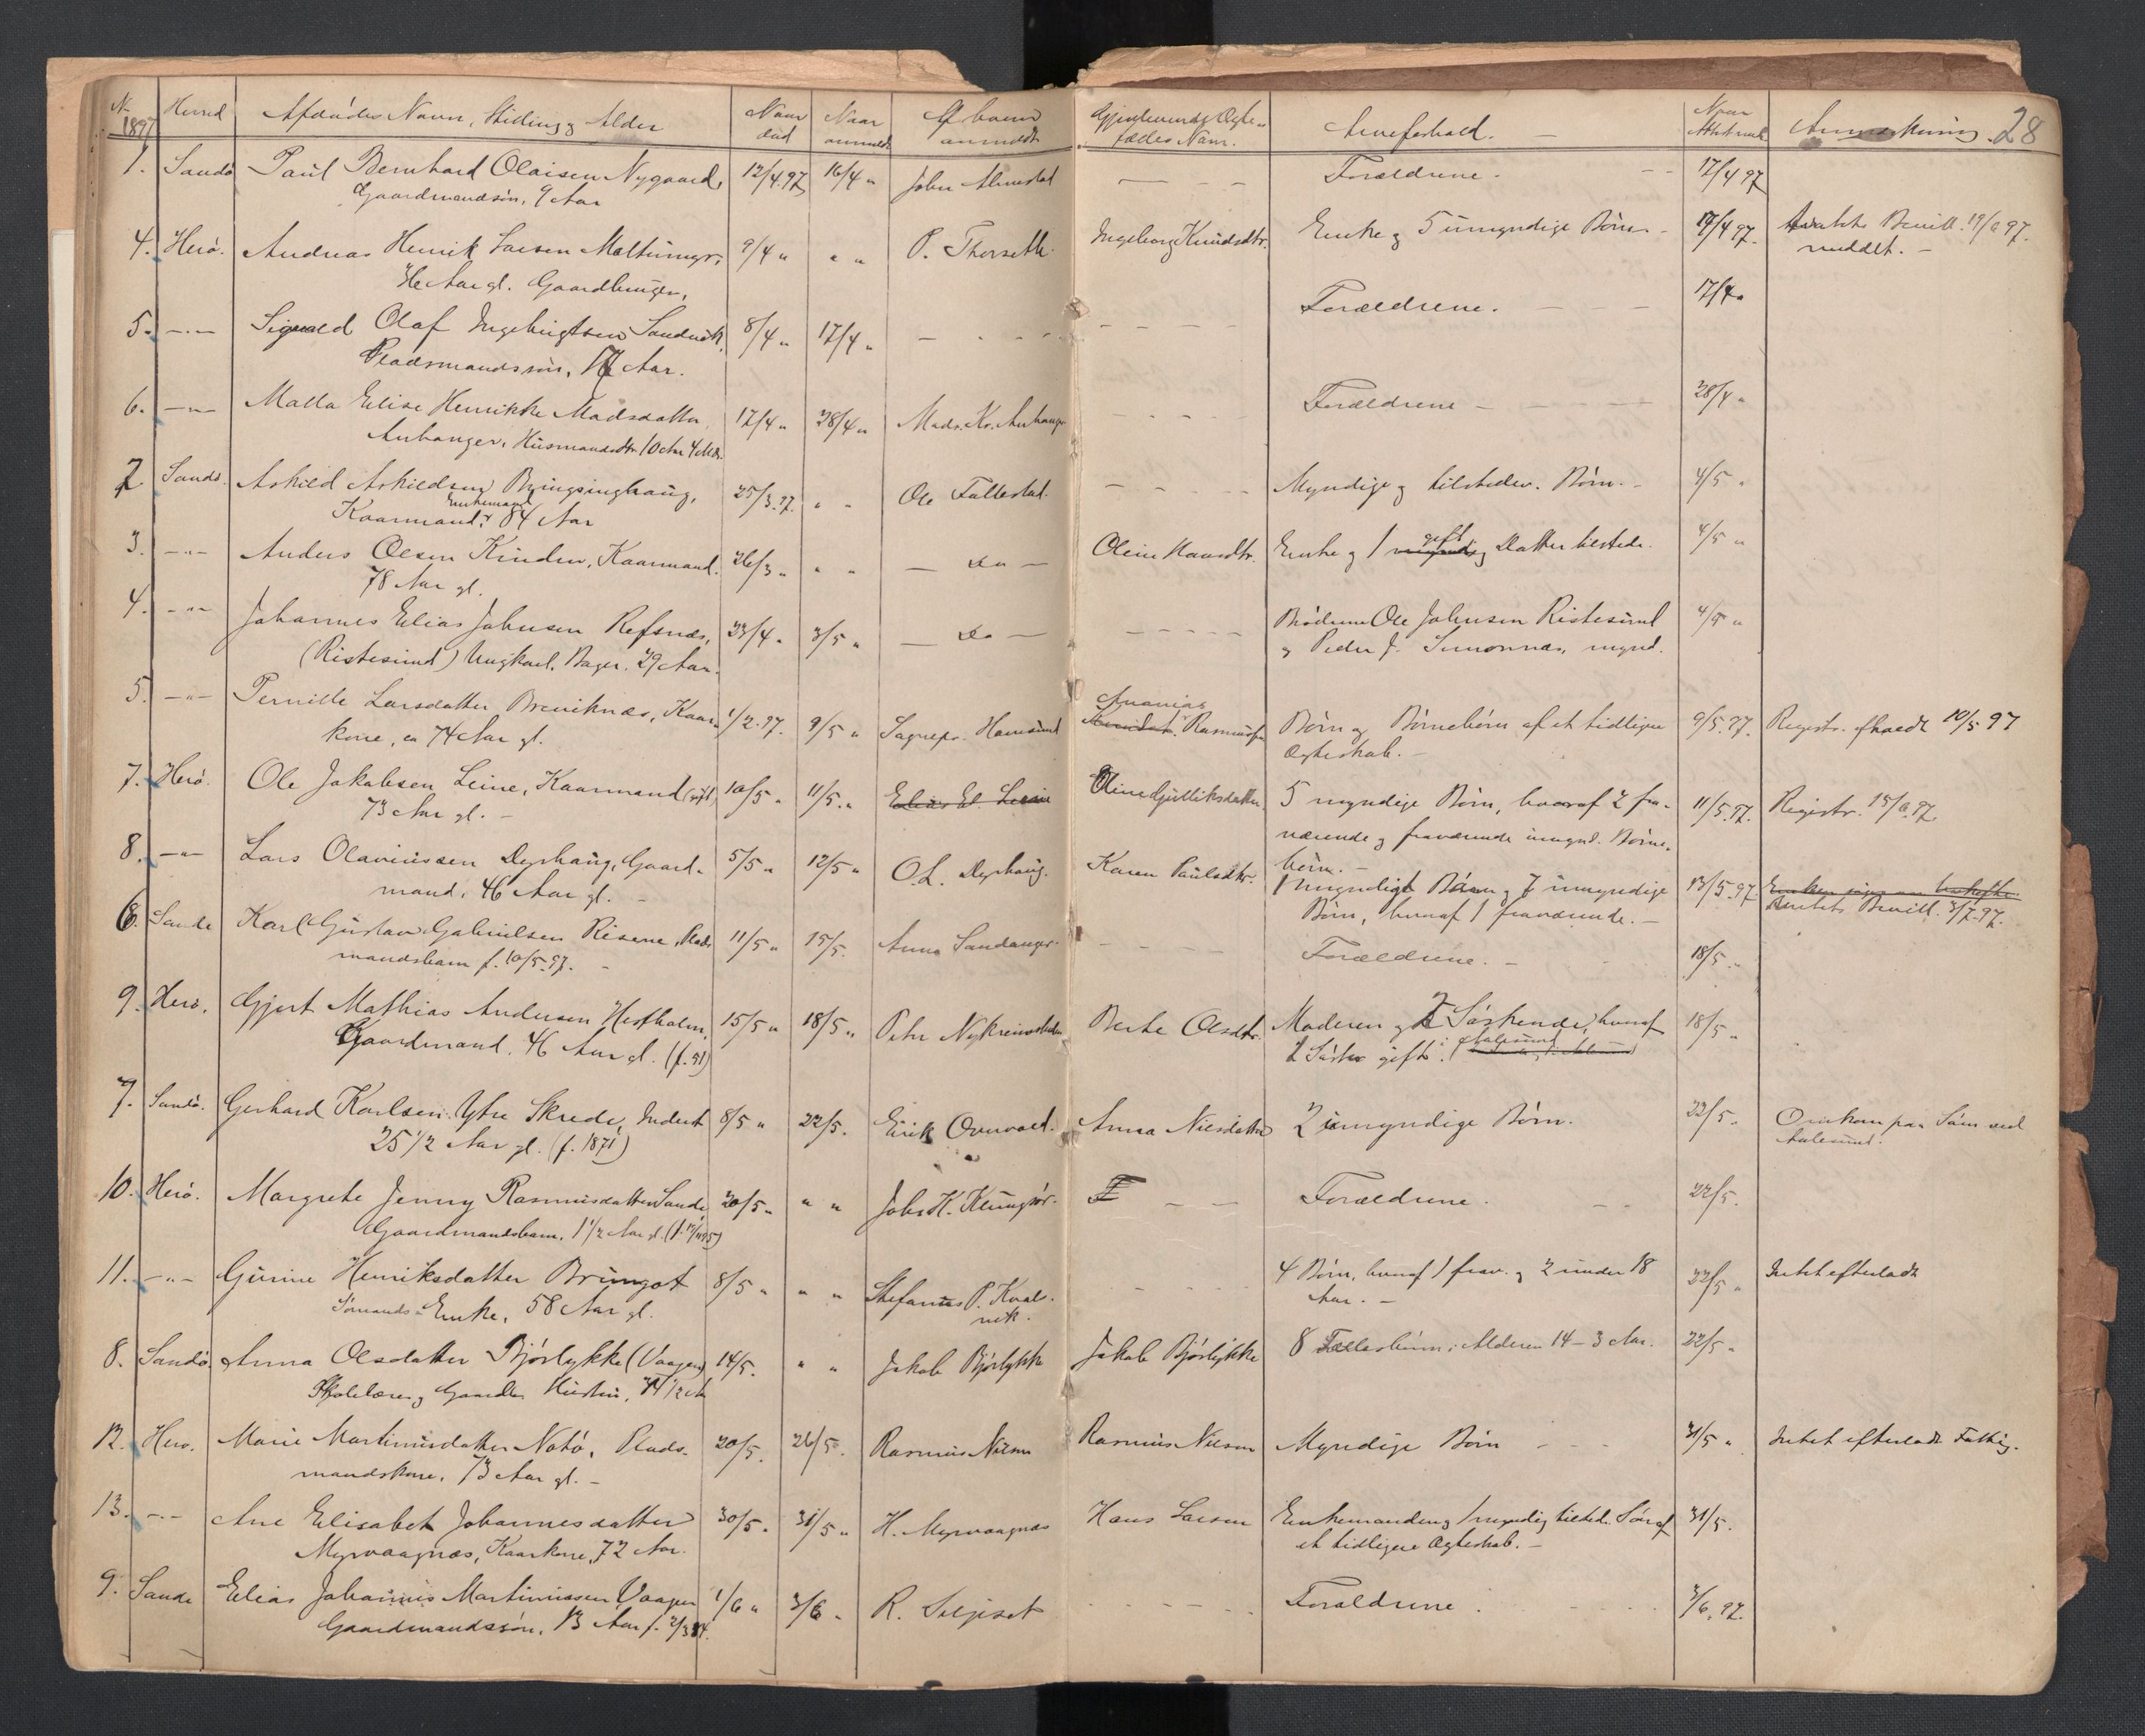 No 1897 Herred Afdødes Navn, Stilling og Alder Naar død Naar anmeldt Af hvem anmeldt Gjenlevende Ægtefælles Navn. Arveforhold. Naar Attest medd. Anmerkning. 28
1. Sandø Paul Bernhard Olaisen Nygaard, 12/4.97 16/4 " John Almestad — — Forældrene. 17/4 97
Gaardmandssøn, 9 Aar
4. Herø. Andreas Henrik Larsen 9/4 " " " P. Thorseth Ingeborg Knudsdtr. Enke og 5 umyndige Børn - 17/4 97. Bevill. 97.
Aar gl. Gaardbruger, meddelt. -
5. —"— Sigvald Olaf Ingebrigtsen Sandvik, 8/4 " 17/4 " - - - - - - - Forældrene. - - 17/4 "
Pladsmandssøn, 17 Aar.
6. —"— Malla Elise Henrikke Madsdatter, 17/4 " 28/4 " Mads. Kr. Aurvaag - - Forældrene - - - 28/4 "
Husmandsdtr. 10 Aar 4 Mdr.
2 Sandø. Askild Askildsen Bringsinghaug, 25/3.97. " " Ole Fallestad. - - - - Myndige og tilstedev. Børn. - 4/5 "
Kaarmand, Enkemand 84 Aar
3. —"— Anders Olsen Kinden, Kaarmand. 26/3 " " " — do — Oline Hansdtr. Enke og 1 gift Datter tilstede. 4/5 "
78 Aar gl.
4. —"— Johannes Elias Johnsen Refsnæs, 23/4 " 3/5 " — do — - - - - - Brødrene Ole Johnsen Ristesund 4/5 "
(Ristesund) Ungkarl. Bager. 29 Aar. og Peder J. mynd.
5. —"— Pernille Larsdatter Breviknæs, Kaar- 1/2.97. 9/5 " Sagnepr. Ananias Rasmussen Børn og Børnebørn af et tidligere 9/5.97. Registr. afholdt 10/5 97
kone, ca 74 Aar gl. Ægteskab. -
7. Herø. Ole Jakobsen Leine, Kaarmand (gift) 10/5 " 11/5. " Elias El. Leine Oline Gulliksdatter 5 myndige Børn, hvoraf 2 fra- 11/5.97. Registr. 15/6.97.
73 Aar gl. - værende og fraværende umynd. Børne-
børn. -
8. —"— Lars Olavussen Dyrhaug, Gaard- 5/5 " 12/5 " O.L. Dyrhaug. Karen Paulsdtr. 1 myndigt Barn og 7 umyndige 13/5.97
mand. 46 Aar gl. - Børn, hvoraf 1 fraværende. - Bevill. 3/7.97.
6. Sande Karl Gustav Gabrielsen Risene, Plads- 11/5 " 15/5. Anna Sandanger. - - - Forældrene. - 18/5. "
mandsbarn f. 10/5.97. -
9. Herø. Gjert Mathias Andersen Hestholm, 15/5 " 18/5 " Peter Nykreimsbakken Berte Olsdtr. Moderen og 2 Søskende, hvoraf 18/5 "
Gaardmand. 46 Aar gl. (f. 51) 1 Søster gift i Aalesund
7. Sandø. Gerhard Karlsen Ytre Skrede, Inderst 8/5 " 22/5. Eirik Overvoll. Anna Nilsdatter 2 umyndige Børn. 22/5. Omkom paa Søen ved
25 1/2 Aar gl. (f. 1871) Aalesund.
10. Herø. Margrete Jenny Rasmusdatter Sande, 20/5 " " " Johs H. Klungsør. — — Forældrene. - - 22/5.
Gaardmandsbarn. 1 1/2 Aar gl.
11. —"— Gurine Henriksdatter Bringot 8/5 " " " Stefanus P. Kval- - - - 4 Børn, hvoraf 1 frav. og 2 under 18 22/5 " Intet efterladt
Sømands-Enke, 58 Aar gl. vik. Aar. -
8. Sandø. Anna Olsdatter Bjørlykke (Vaagen) 14/5. " " Jakob Bjørlykke Jakob Bjørlykke 8 Fællesbørn i Alderen 14 - 3 Aar. 22/5 "
Skolelærer og Gaardbr. Hustru,
12. Herø. Marie Martinusdatter Notø, Plads- 20/5. 26/5. Rasmus Nilsen Rasmus Nilsen Myndige Børn - - - 31/5 " Intet efterladt Fattig.
mandskone, 73 Aar gl. -
13. —"— Ane Elisabet Johannesdatter 30/5. 31/5 " H. Myrvaagnæs Hans Larsen Enkemanden og 1 myndig tilsted. Søn af 31/5.
Myrvaagnæs, Kaarkone, 72 Aar. et tidligere Ægteskab. -
9. Sande Elias Johannes Martinussen Vaagen 1/6 " 3/6 " R. Seljeset - - - - - Forældrene. - - - 3/6.97.
Gaardmandssøn. 13 Aar f. 2/3 84.